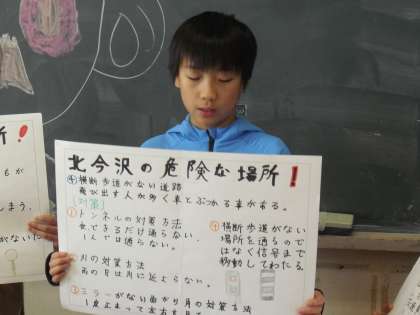 所！
もが
しまう。
がないに
北今沢の危険な場所！
④横断歩道がない道路
飛び出す人が多く車とぶつかる事がある。
(対策)
①トンネルの対策方法
なできるだけ通らない。
1人では通らない。
川の対策方法
雨の日は川に近よらない。
③ミラーがない曲がり角の対策方法
1度止まって左右を
④横断歩道がない
場所を通るので
はなく信号まで
移動してわたる。